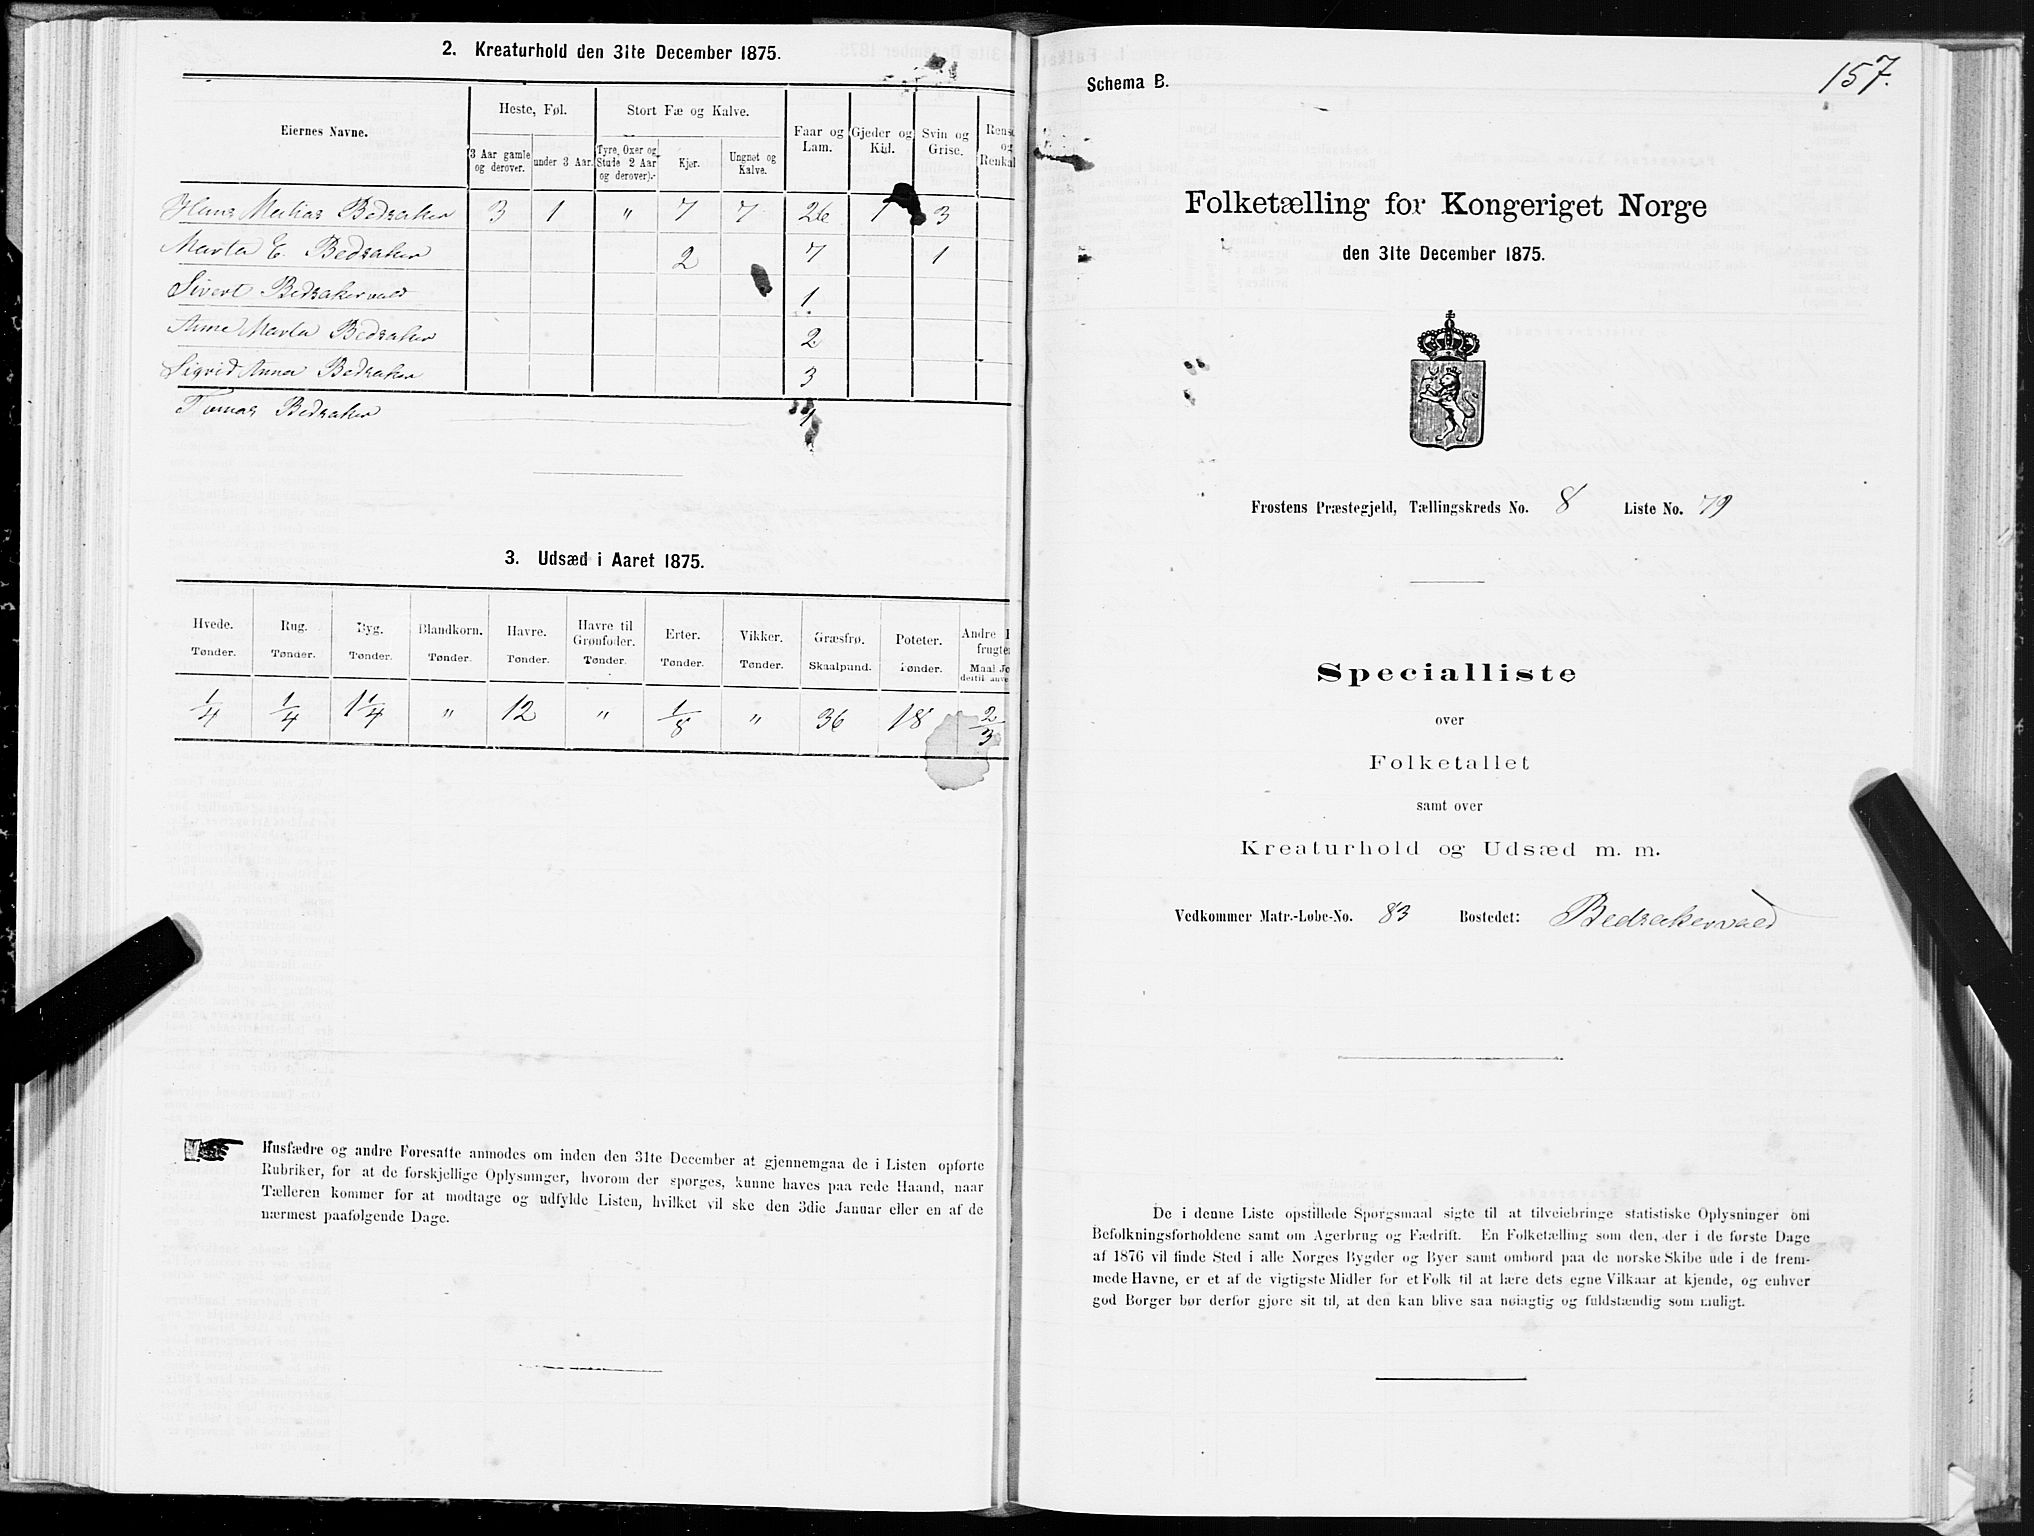 2. Kreaturhold den 31te December 1875.
Eiernes Navne. Heste, Føl. Stort Fæ og Kalve. Faar og Lam. Gjeder og Kid. Svin og Grise.
3 Aar gamle og derover. under 3 Aar. Tyre, Oxer og Stude 2 Aar og derover). Kjør. Ungnøt og Kalve.
Hans Matias Bedsaker 3 1 " 7 7 26 1 3
Marta E. Bedsaker 2 7 1
Sivert Bedsakervald 1
Anne Marta Bedsaker 2
Sigrid Anna Bedsaker 3
Tomas Bedsaker 1
3. Udsæd i Aaret 1875.
Hvede. Rug. Byg. Blandkorn. Havre. Havre til Grønfoder. Erter. Vikker. Græsfrø. Poteter. Andre
Tønder. Tønder. Tønder. Tønder. Tønder. Tønder. Tønder. Tønder. Skaalpund. Tønder. Maal
1/4 1/4 1 1/4 " 12 " 1/8 " 36 18 2/3
Husfædre og andre Foresatte anmodes om inden den 31te December at gjennemgaa de i Listen opførte
Rubriker, for at de forskjellige Oplysninger, hvorom der spørges, kunne haves paa rede Haand, naar
Tælleren kommer for at modtage og udfylde Listen, hvilket vil ske den 3die Januar eller en af de
nærmest paafølgende Dage.
157.
Schema B.
Folketælling for Kongeriget Norge
den 31te December 1875.
Frostens Præstegjeld, Tællingskreds No. 8 Liste No. 79
Specialliste
over
Folketallet
samt over
Kreaturhold og Udsæd m. m.
Vedkommer Matr.-Løbe-No. 83 Bostedet: Bedsakervald
De i denne Liste opstillede Spørgsmaal sigte til at tilveiebringe statistiske Oplysninger om
Befolkningsforholdene samt om Agerbrug og Fædrift. En Folketælling som den, der i de første Dage
af 1876 vil finde Sted i alle Norges Bygder og Byer samt ombord paa de norske Skibe ude i de frem-
mede Havne, er et af de vigtigste Midler for et Folk til at lære dets egne Vilkaar at kjende, og enhver
god Borger bør derfor gjøre sit til, at den kan blive saa nøiagtig og fuldstændig som muligt.